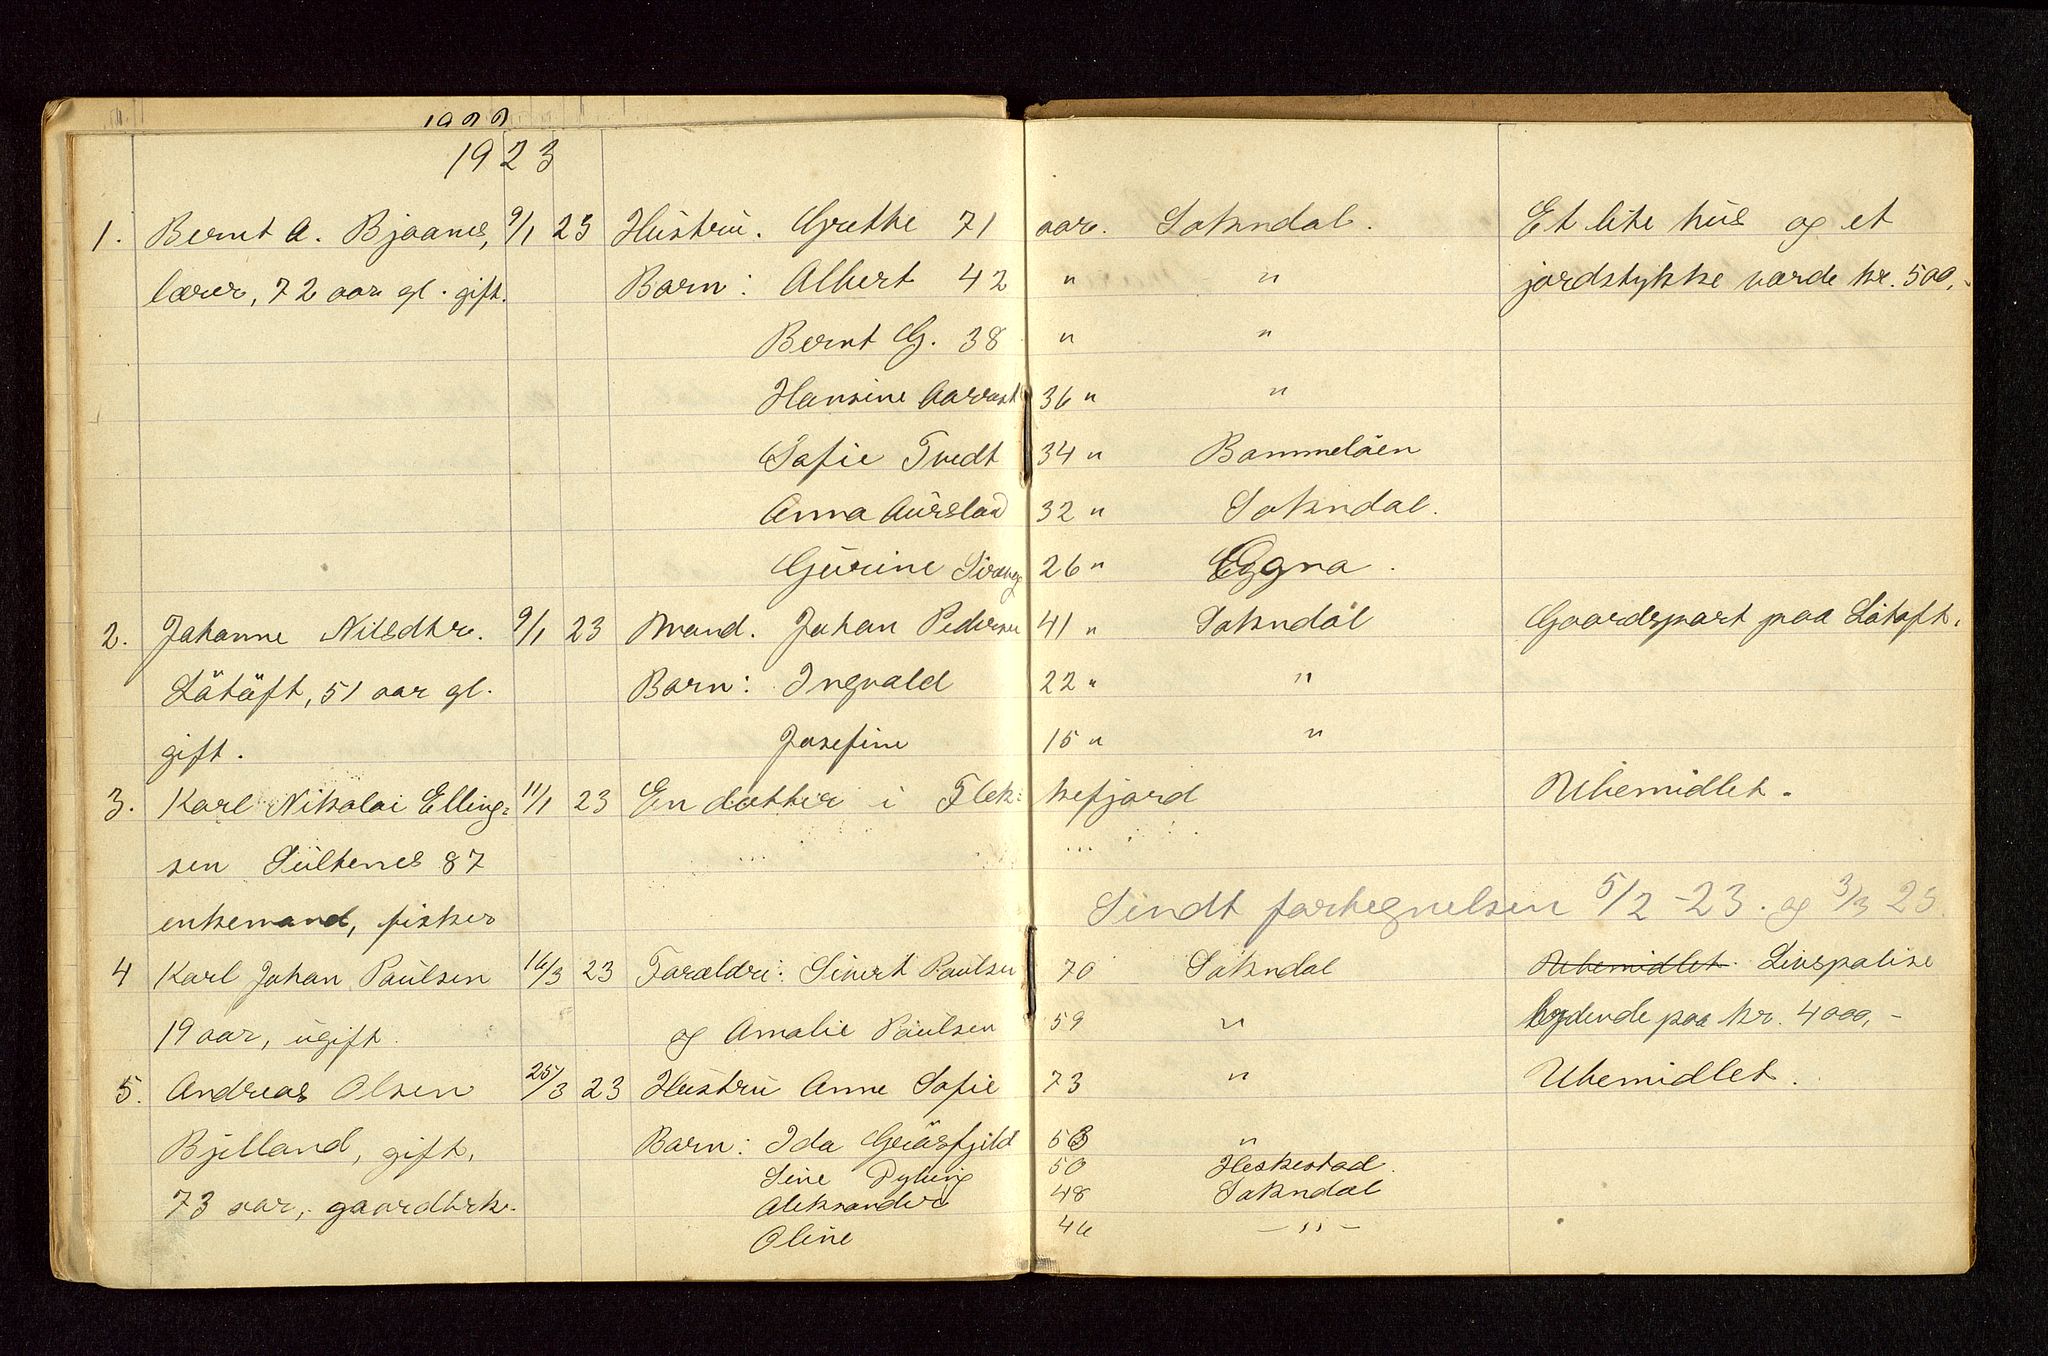 1923
1. Bernt A. Bjaanes, 9/1 23 Hustru. Grethe 71 aar. Sokndal. Et lite hus og et
lærer, 72 aar gl. gift. Barn: Albert 42 " " jordstykke værde kr. 500,-
Bernt G. 38 " "
Hansine Aarrest 36 " "
Sofie Tvedt 34 " Bommeløen
Anna Aurstad 32 " Sokndal.
Gurine 26 " Eggna.
2. Johanne Nilsdtr. 9/1 23 Mand. Johan Pedersen 41 " Sokndal Gaardspart paa Løtoft.
Løtoft, 51 aar gl. Barn: Ingvald 22 " "
gift. Josefine 15 " "
3. Karl Nikolai Elling- 11/1 23 En datter i Flek- kefjord Ubemidlet.
sen Sultenes 87
enkemand, fisker Sendt fortegnelsen 5/2-23. og 3/3 23.
4 Karl Johan Paulsen 16/3 23 Forældre: Sivert Paulsen 70 Sokndal Ubemidlet. Livspolise
19 aar, ugift. og Amalie Paulsen 59 " lydende paa kr. 4000,-
5. Andreas Olsen 25/3 23 Hustru Anne Sofie 73 " Ubemidlet.
Bjelland, gift, Barn: Ida 53 "
Sine Dyking 50 Heskestad.
73 aar, gaardbrk. Aleksander 48 Sokndal
Oline 46 - " -